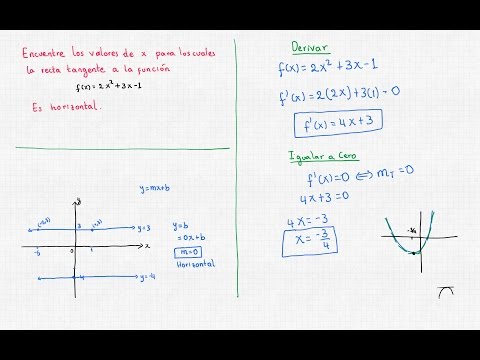 Encuentre los valores de x para los cuales
la recta tangente a la función
f(x) = 2x² + 3x - 1
Es horizontal.
y = mx+b
y
3
y = 3
x
0
1
y = b
= 0x + b
m = 0
Horizontal
y = -4
Derivar
f(x) = 2x² + 3x - 1
f'(x) = 2(2x) + 3(1) - 0
f'(x) = 4x + 3
Igualar a Cero
f'(x) = 0 ⟺ m_T = 0
4x + 3 = 0
4x = -3
x = -3/4
-3/4